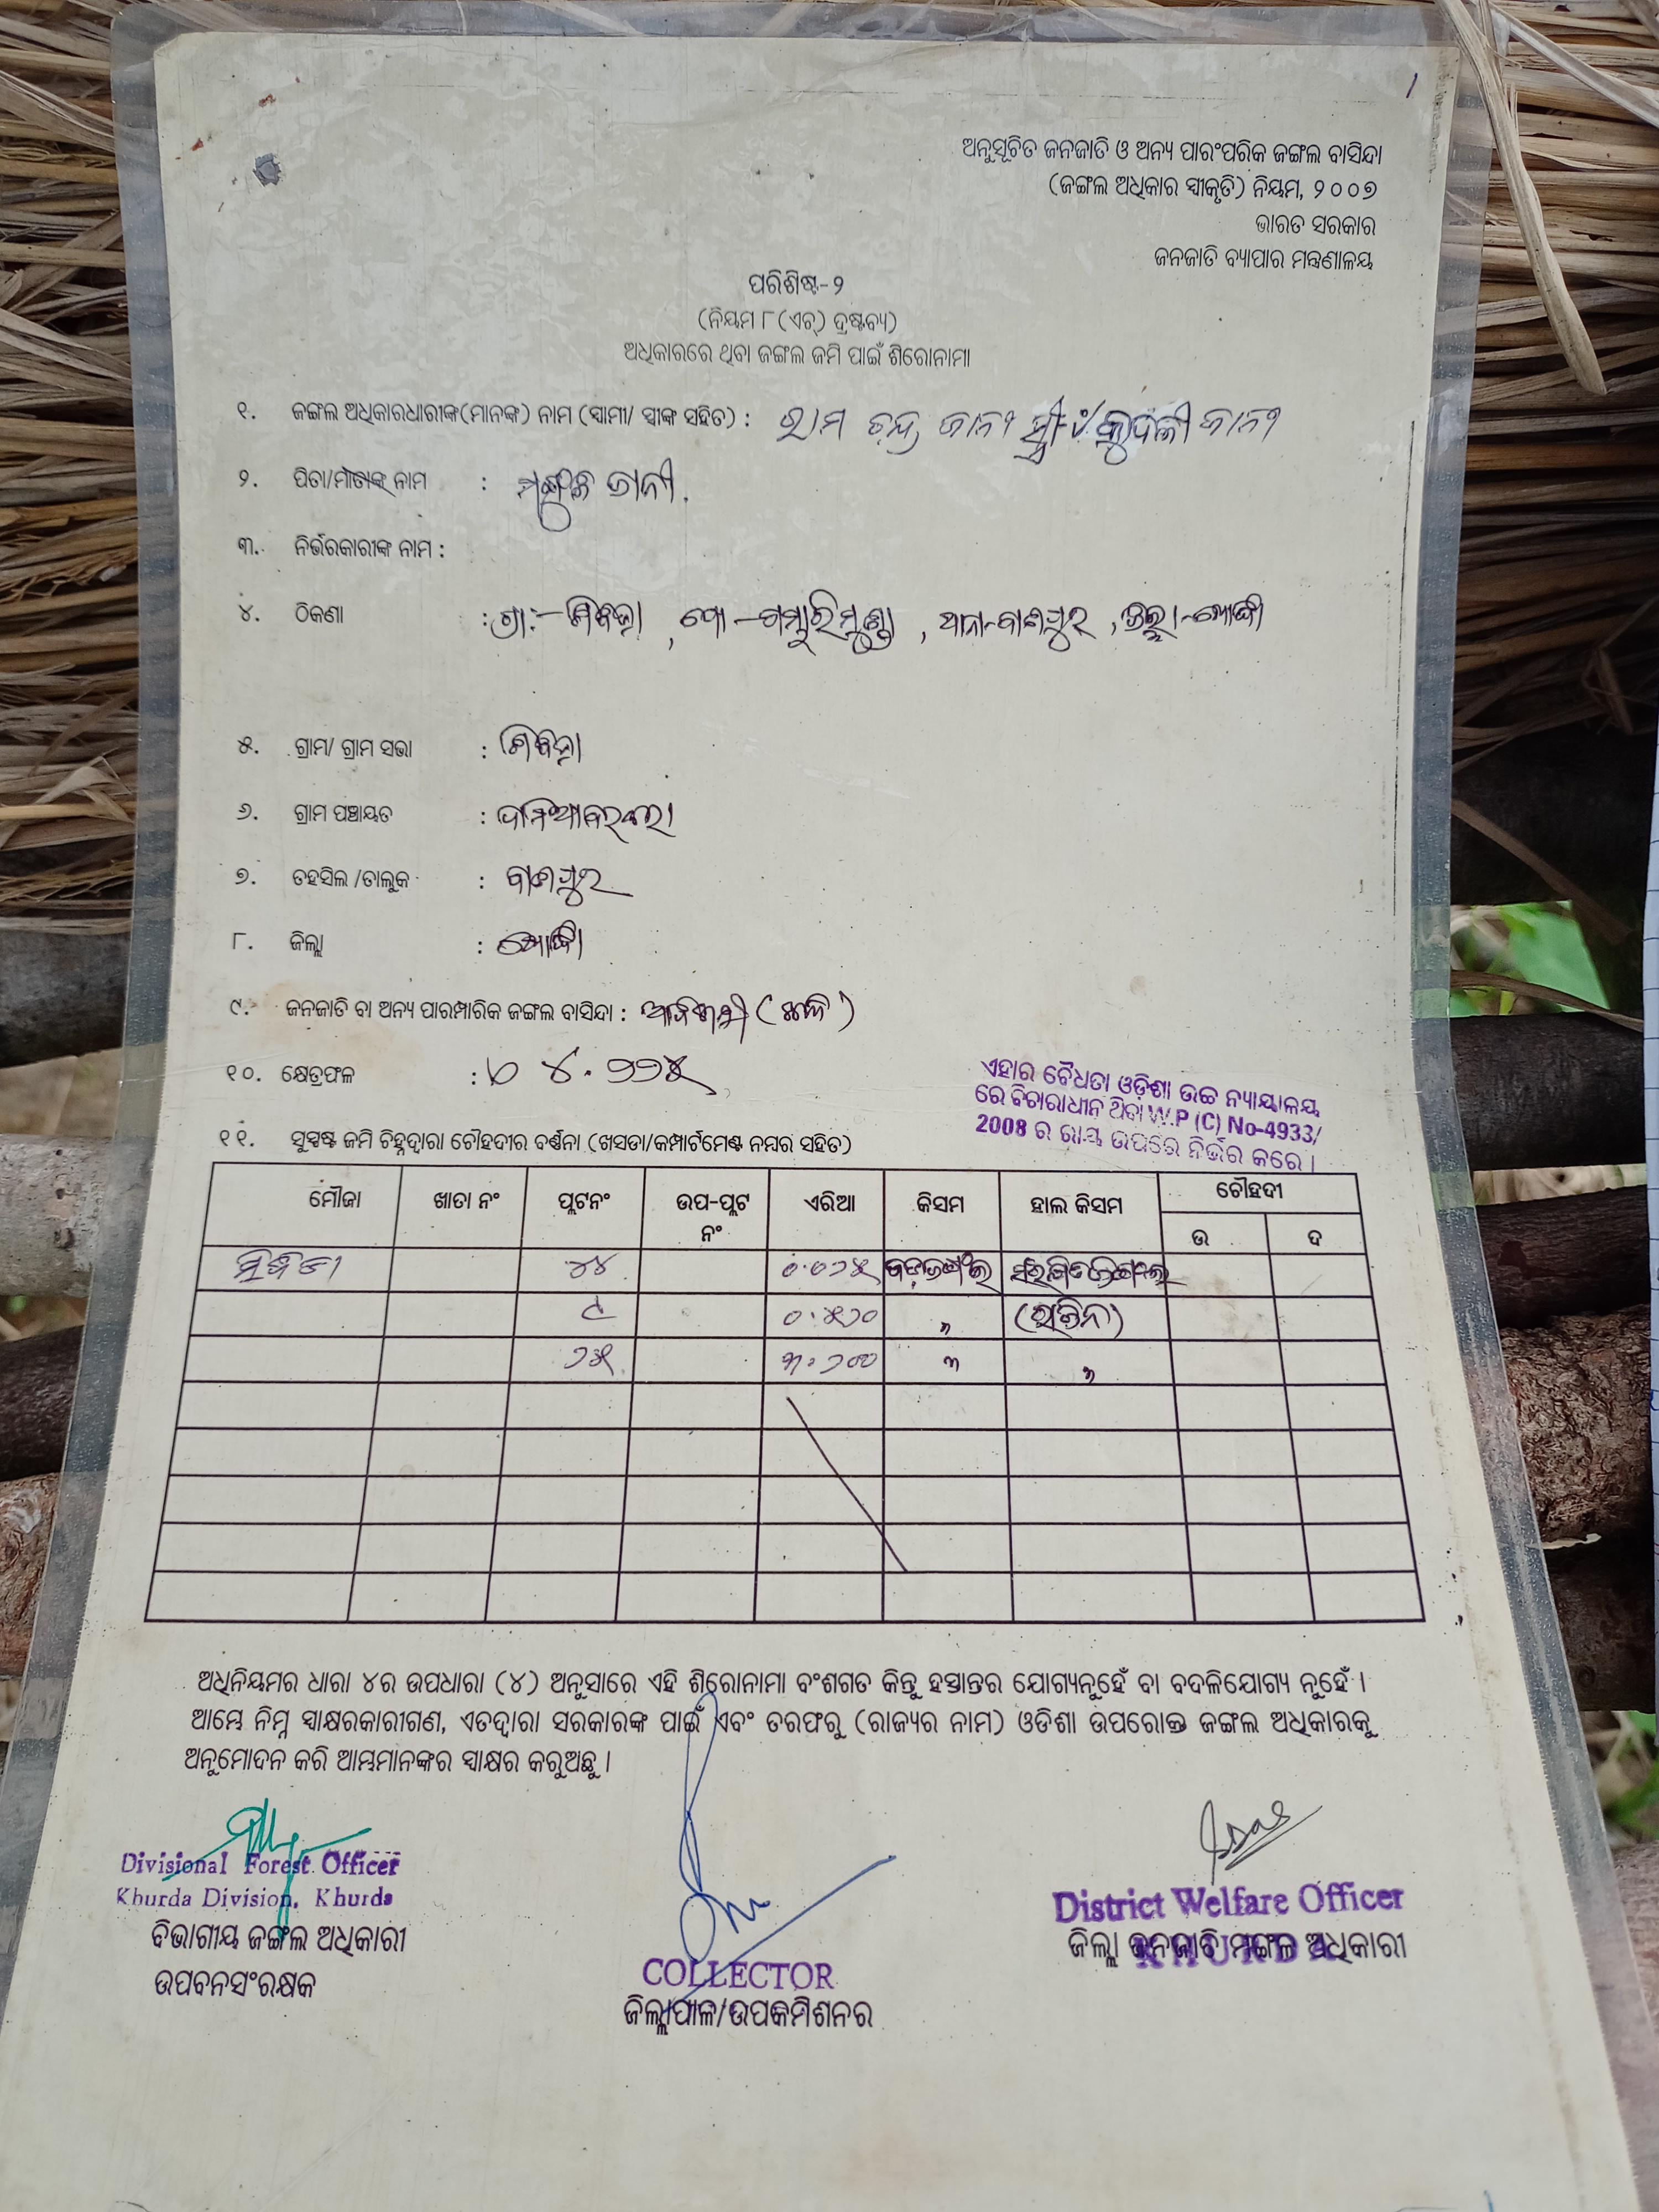 ଅନୁସୂଚିତ ଜନଜାତି ଓ ଅନ୍ୟ ପାରଂପରିକ ଜଙ୍ଗଲ ବାସିନ୍ଦା
(ଜଙ୍ଗଲ ଅଧିକାର ସ୍ୱୀକୃତି) ନିୟମ, ୨୦୦୭
ଭାରତ ସରକାର
ଜନଜାତି ବ୍ୟାପାର ମନ୍ତ୍ରଣାଳୟ
ପରିଶିଷ୍ଟ-୨
(ନିୟମ ୮(ଏଚ୍) ଦ୍ରଷ୍ଟବ୍ୟ)
ଅଧିକାରରେ ଥିବା ଜଙ୍ଗଲ ଜମି ପାଇଁ ଶିରୋନାମା
୧. ଜଙ୍ଗଲ ଅଧିକାରଧାରୀଙ୍କ(ମାନଙ୍କ) ନାମ (ସ୍ୱାମୀ/ ସ୍ତ୍ରୀଙ୍କ ସହିତ) : ରାମ ଚନ୍ଦ୍ର ଜାନୀ ସ୍ତ୍ରୀ
୨. ପିତା/ମାତାଙ୍କ ନାମ : ଜାନୀ.
୩. ନିର୍ଭରକାରୀଙ୍କ ନାମ :
୪. ଠିକଣା : ଗ୍ରା:- , ପୋ-ଗମ୍ଭାରିମୁଣ୍ଡା , ଥାନା-ବାଣପୁର , ଜିଲ୍ଲା-ଖୋର୍ଦ୍ଧା
୫. ଗ୍ରାମ/ ଗ୍ରାମ ସଭା :
୬. ଗ୍ରାମ ପଞ୍ଚାୟତ :
୭. ତହସିଲ /ତାଲୁକ : ବାଣପୁର
୮. ଜିଲ୍ଲା : ଖୋର୍ଦ୍ଧା
୯. ଜନଜାତି ବା ଅନ୍ୟ ପାରମ୍ପାରିକ ଜଙ୍ଗଲ ବାସିନ୍ଦା :
୧୦. କ୍ଷେତ୍ରଫଳ :
ଏହାର ବୈଧତା ଓଡ଼ିଶା ଉଚ୍ଚ ନ୍ୟାୟାଳୟ
ରେ ବିଚାରାଧୀନ ଥିବା W.P (C) No-4933/
2008 ର ରାୟ ଉପରେ ନିର୍ଭର କରେ ।
୧୧. ସୁସ୍ପଷ୍ଟ ଜମି ଚିହ୍ନଦ୍ୱାରା ଚୌହଦୀର ବର୍ଣ୍ଣନା (ଖସଡା/କମ୍ପାର୍ଟମେଣ୍ଟ ନମ୍ବର ସହିତ)
ମୌଜା ଖାତା ନଂ ପ୍ଲଟନଂ ଉପ-ପ୍ଲଟ ନଂ ଏରିଆ କିସମ ହାଲ କିସମ ଚୌହଦୀ
ଉ ଦ
୪୪ ୦.୦୨୫
୯ ୦.୫୨୦
୨୫ ୩.୨୦୦
ଅଧିନିୟମର ଧାରା ୪ର ଉପଧାରା (୪) ଅନୁସାରେ ଏହି ଶିରୋନାମା ବଂଶଗତ କିନ୍ତୁ ହସ୍ତାନ୍ତର ଯୋଗ୍ୟନୁହେଁ ବା ବଦଳିଯୋଗ୍ୟ ନୁହେଁ ।
ଆମ୍ଭେ ନିମ୍ନ ସ୍ୱାକ୍ଷରକାରୀଗଣ, ଏତଦ୍ୱାରା ସରକାରଙ୍କ ପାଇଁ ଏବଂ ତରଫରୁ (ରାଜ୍ୟର ନାମ) ଓଡିଶା ଉପରୋକ୍ତ ଜଙ୍ଗଲ ଅଧିକାରକୁ
ଅନୁମୋଦନ କରି ଆମ୍ଭମାନଙ୍କର ସ୍ୱାକ୍ଷର କରୁଅଛୁ ।
Divisional Forest Officer
Khurda Division, Khurda
ବିଭାଗୀୟ ଜଙ୍ଗଲ ଅଧିକାରୀ
ଉପବନସଂରକ୍ଷକ
COLLECTOR
ଜିଲ୍ଲାପାଳ/ଉପକମିଶନର
District Welfare Officer
KHURDA
ଜିଲ୍ଲା ଜନଜାତି ମଙ୍ଗଳ ଅଧିକାରୀ